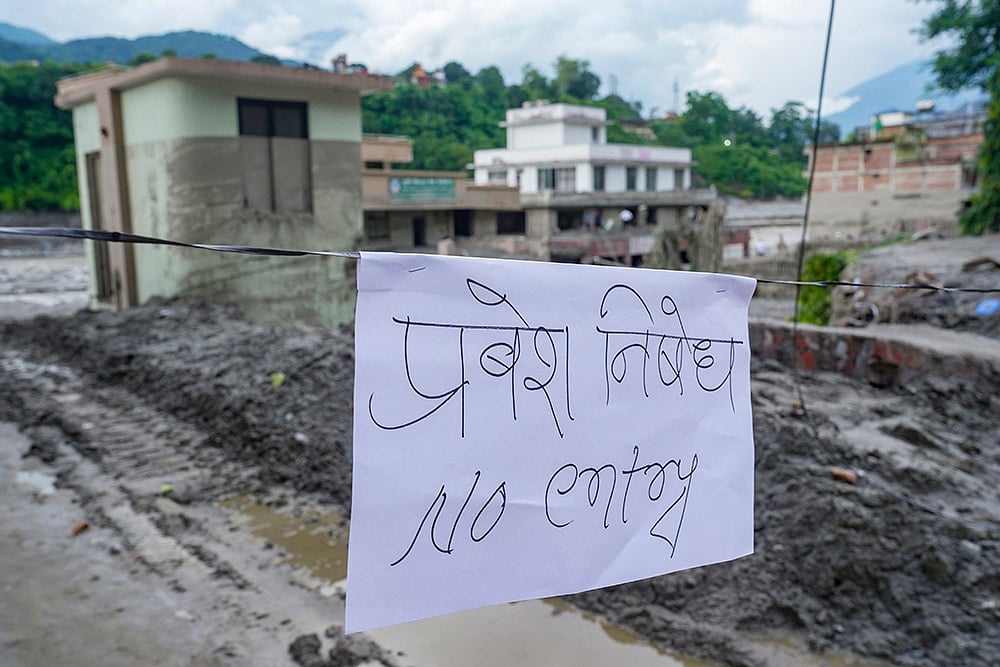 प्रबेश निषेध
No entry